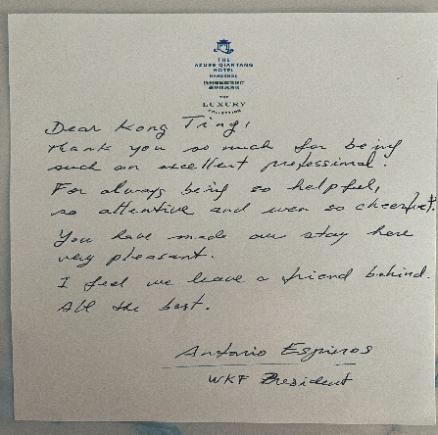 THE
AZURE QIANTANG
HOTEL
HANGZHOU
THE
LUXURY
COLLECTION
Dear Kong Ting,
thank you so much for being
such an excellent professional.
For always being so helpful,
so attentive and even so cheerful.
You have made our stay here
very pleasant.
I feel we leave a friend behind.
All the best.
Antonio Espinos
WKF President